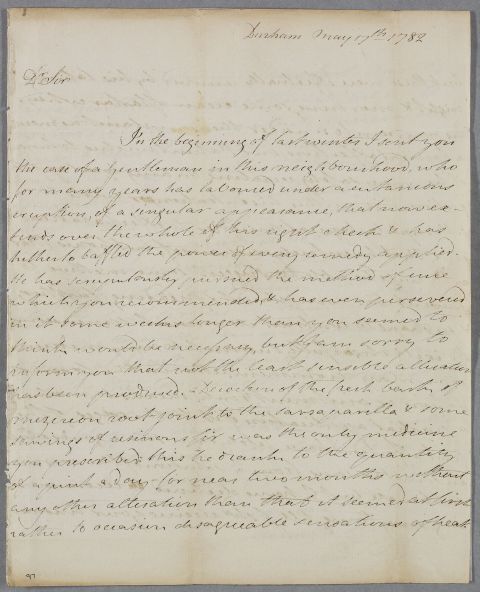 Durham May 17th. 1782
Dr Sir
In the beginning of last winter I sent you
the case of a Gentleman in this neighbourhood, who
for many years has laboured under a cutaneous
eruption, of a singular appearance, that now ex-
tends over the whole of his right cheek & has
hitherto baffled the power of every remedy applied.
He has scrupulously pursued the method of cure
which you recommended, & has even persevered
in it some weeks longer than you seemed to
think would be necessary, but I am sorry to
inform you that not the least sensible alteration
has been produced. Decoction of the fresh bark of
mezereon root joint to the sarsaparilla & some
of was the only medicine
you prescribed; this he drank to the quantity
of a pint a day for near two months without
any other alteration than that it seemed at first
rather to occasion disagreeable sensations of heat